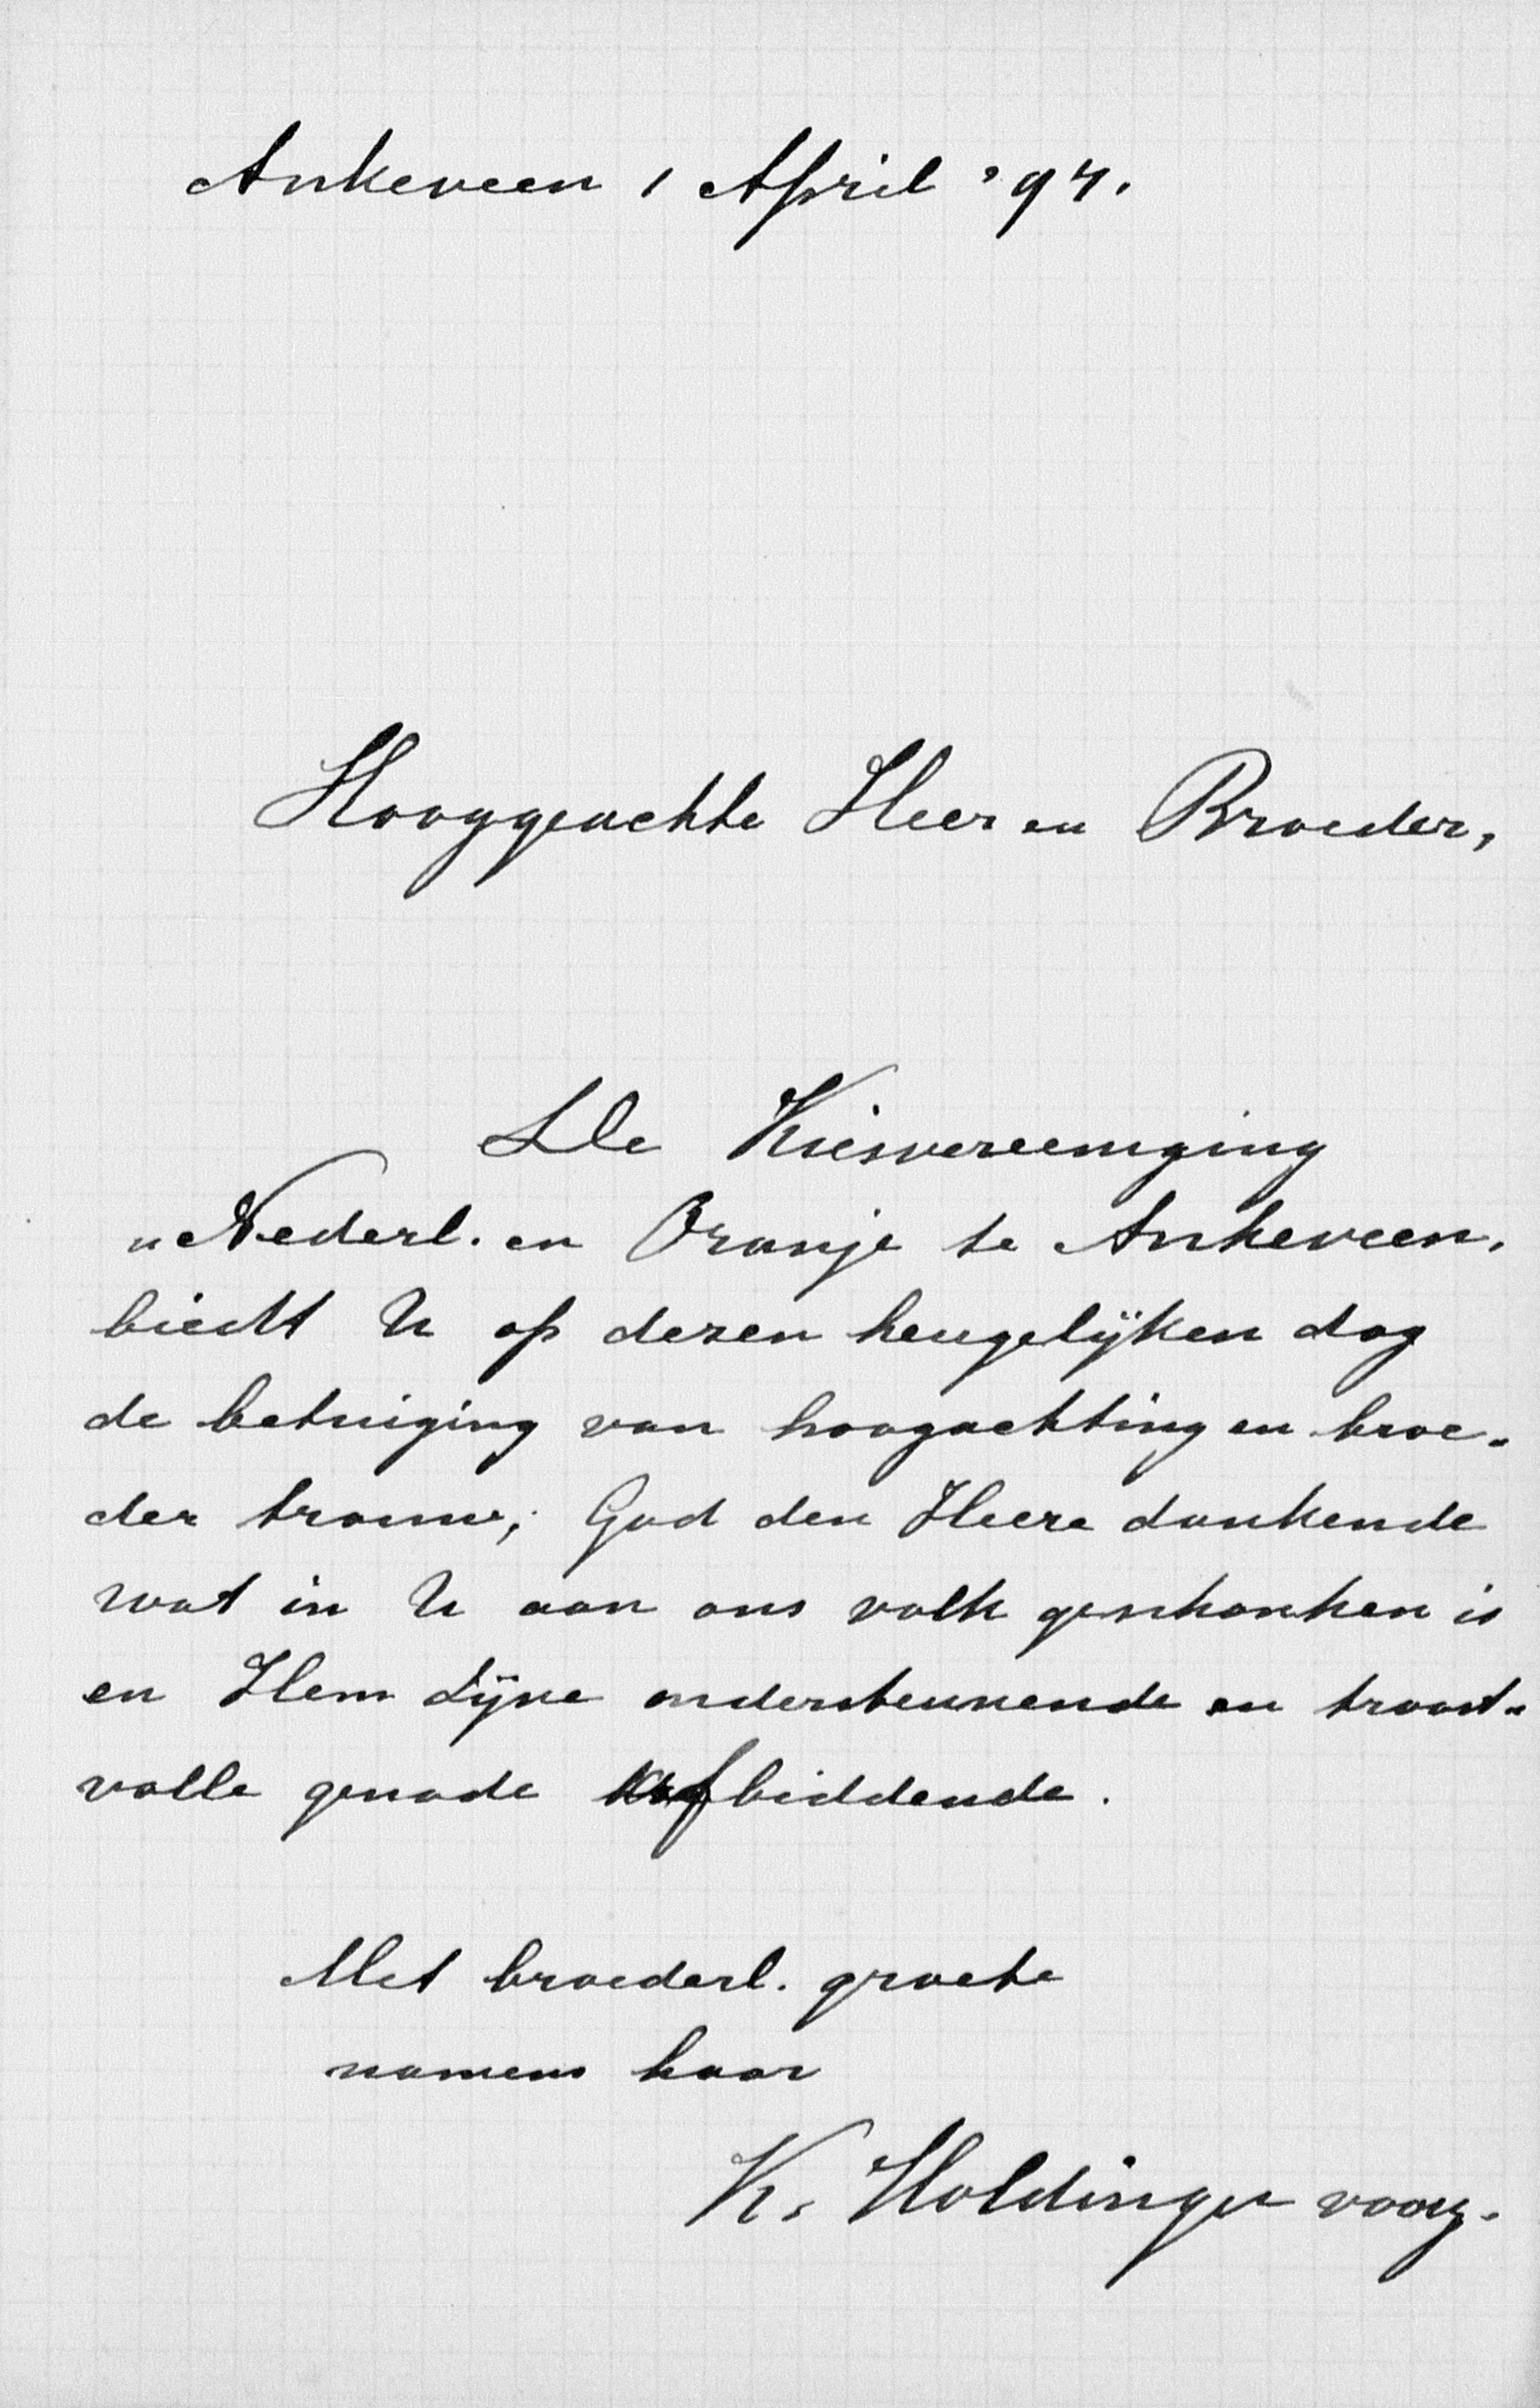 Ankeveen 1 April '97.
Hooggeachte Heer en Broeder,
De Kiesvereeniging
„Nederl. en Oranje te Ankeveen.
biedt U op dezen heugelijken dag
de betuiging van hoogachting en broe-
der trouw; God den Heere dankende
wat in U aan ons volk geschonken is
en Hem Zijne ondersteunende en troost-
volle genade afbiddende.
Met broederl. groete
namens haar
K. Holdinga voorz.